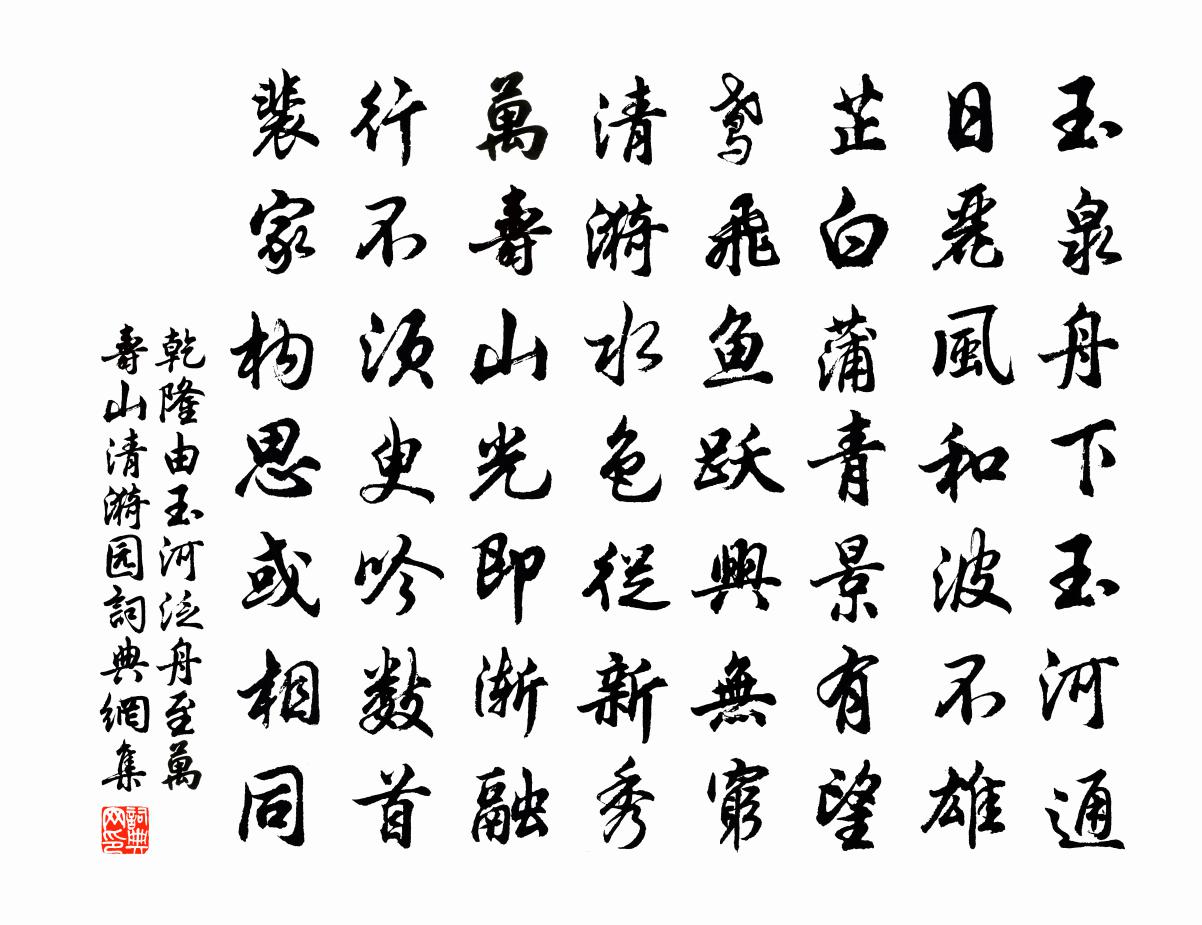 玉泉舟下玉河通
日麗風和波不雄
芷白蒲青景有望
鸢飛鱼跃興無窮
清漪水色從新秀
萬壽山光即渐融
行不须臾吟数首
裴家构思或相同
乾隆由玉河泛舟至萬
壽山清漪园詞典網集
詞典网印